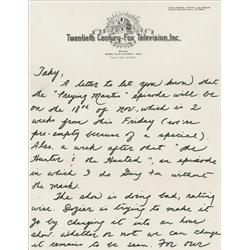 Twentieth Century-Fox Television, Inc.
Taky,
A letter to let you know that
the "Praying Mantis" episode will be
on the 18th of nov, which is 2
weeks from this Friday (we're
pre-empty because of a special).
Also, a week after that "the
Hunter & the Hunted", an episode
in which I do Gung Fu without
the mask.
The show is doing bad, rating
wise. Dozier is trying to make it
go by changing it into an hour
show. Whether or not we can change
it remains to be seen. For our